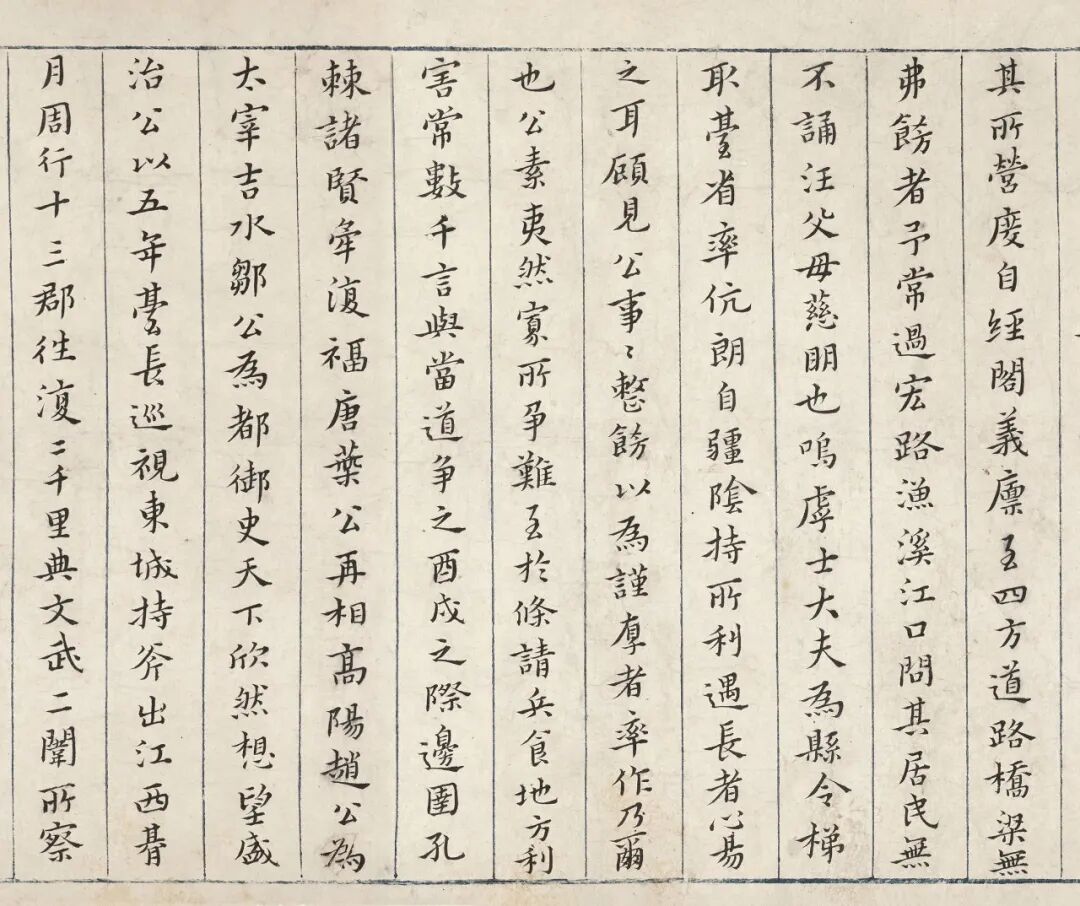 其所營度自經閣義廪至四方道路橋梁無
弗餝者予常過宏路漁溪江口問其居民無
不誦汪父母慈明也嗚虖士大夫為縣令梯
取臺省率伉朗自疆陰持所利遇長者心易
之耳顧見公事〻整餝以為謹厚者率作乃爾
也公素夷然寡所爭難至於條請兵食地方利
害常數千言與當道爭之酉戌之際邊圉孔
棘諸賢牽復福唐葉公再相高陽趙公為
太宰吉水鄒公為都御史天下欣然想望盛
治公以五年臺長巡視東城持斧出江西朞
月周行十三郡往復二千里典文武二闈所察